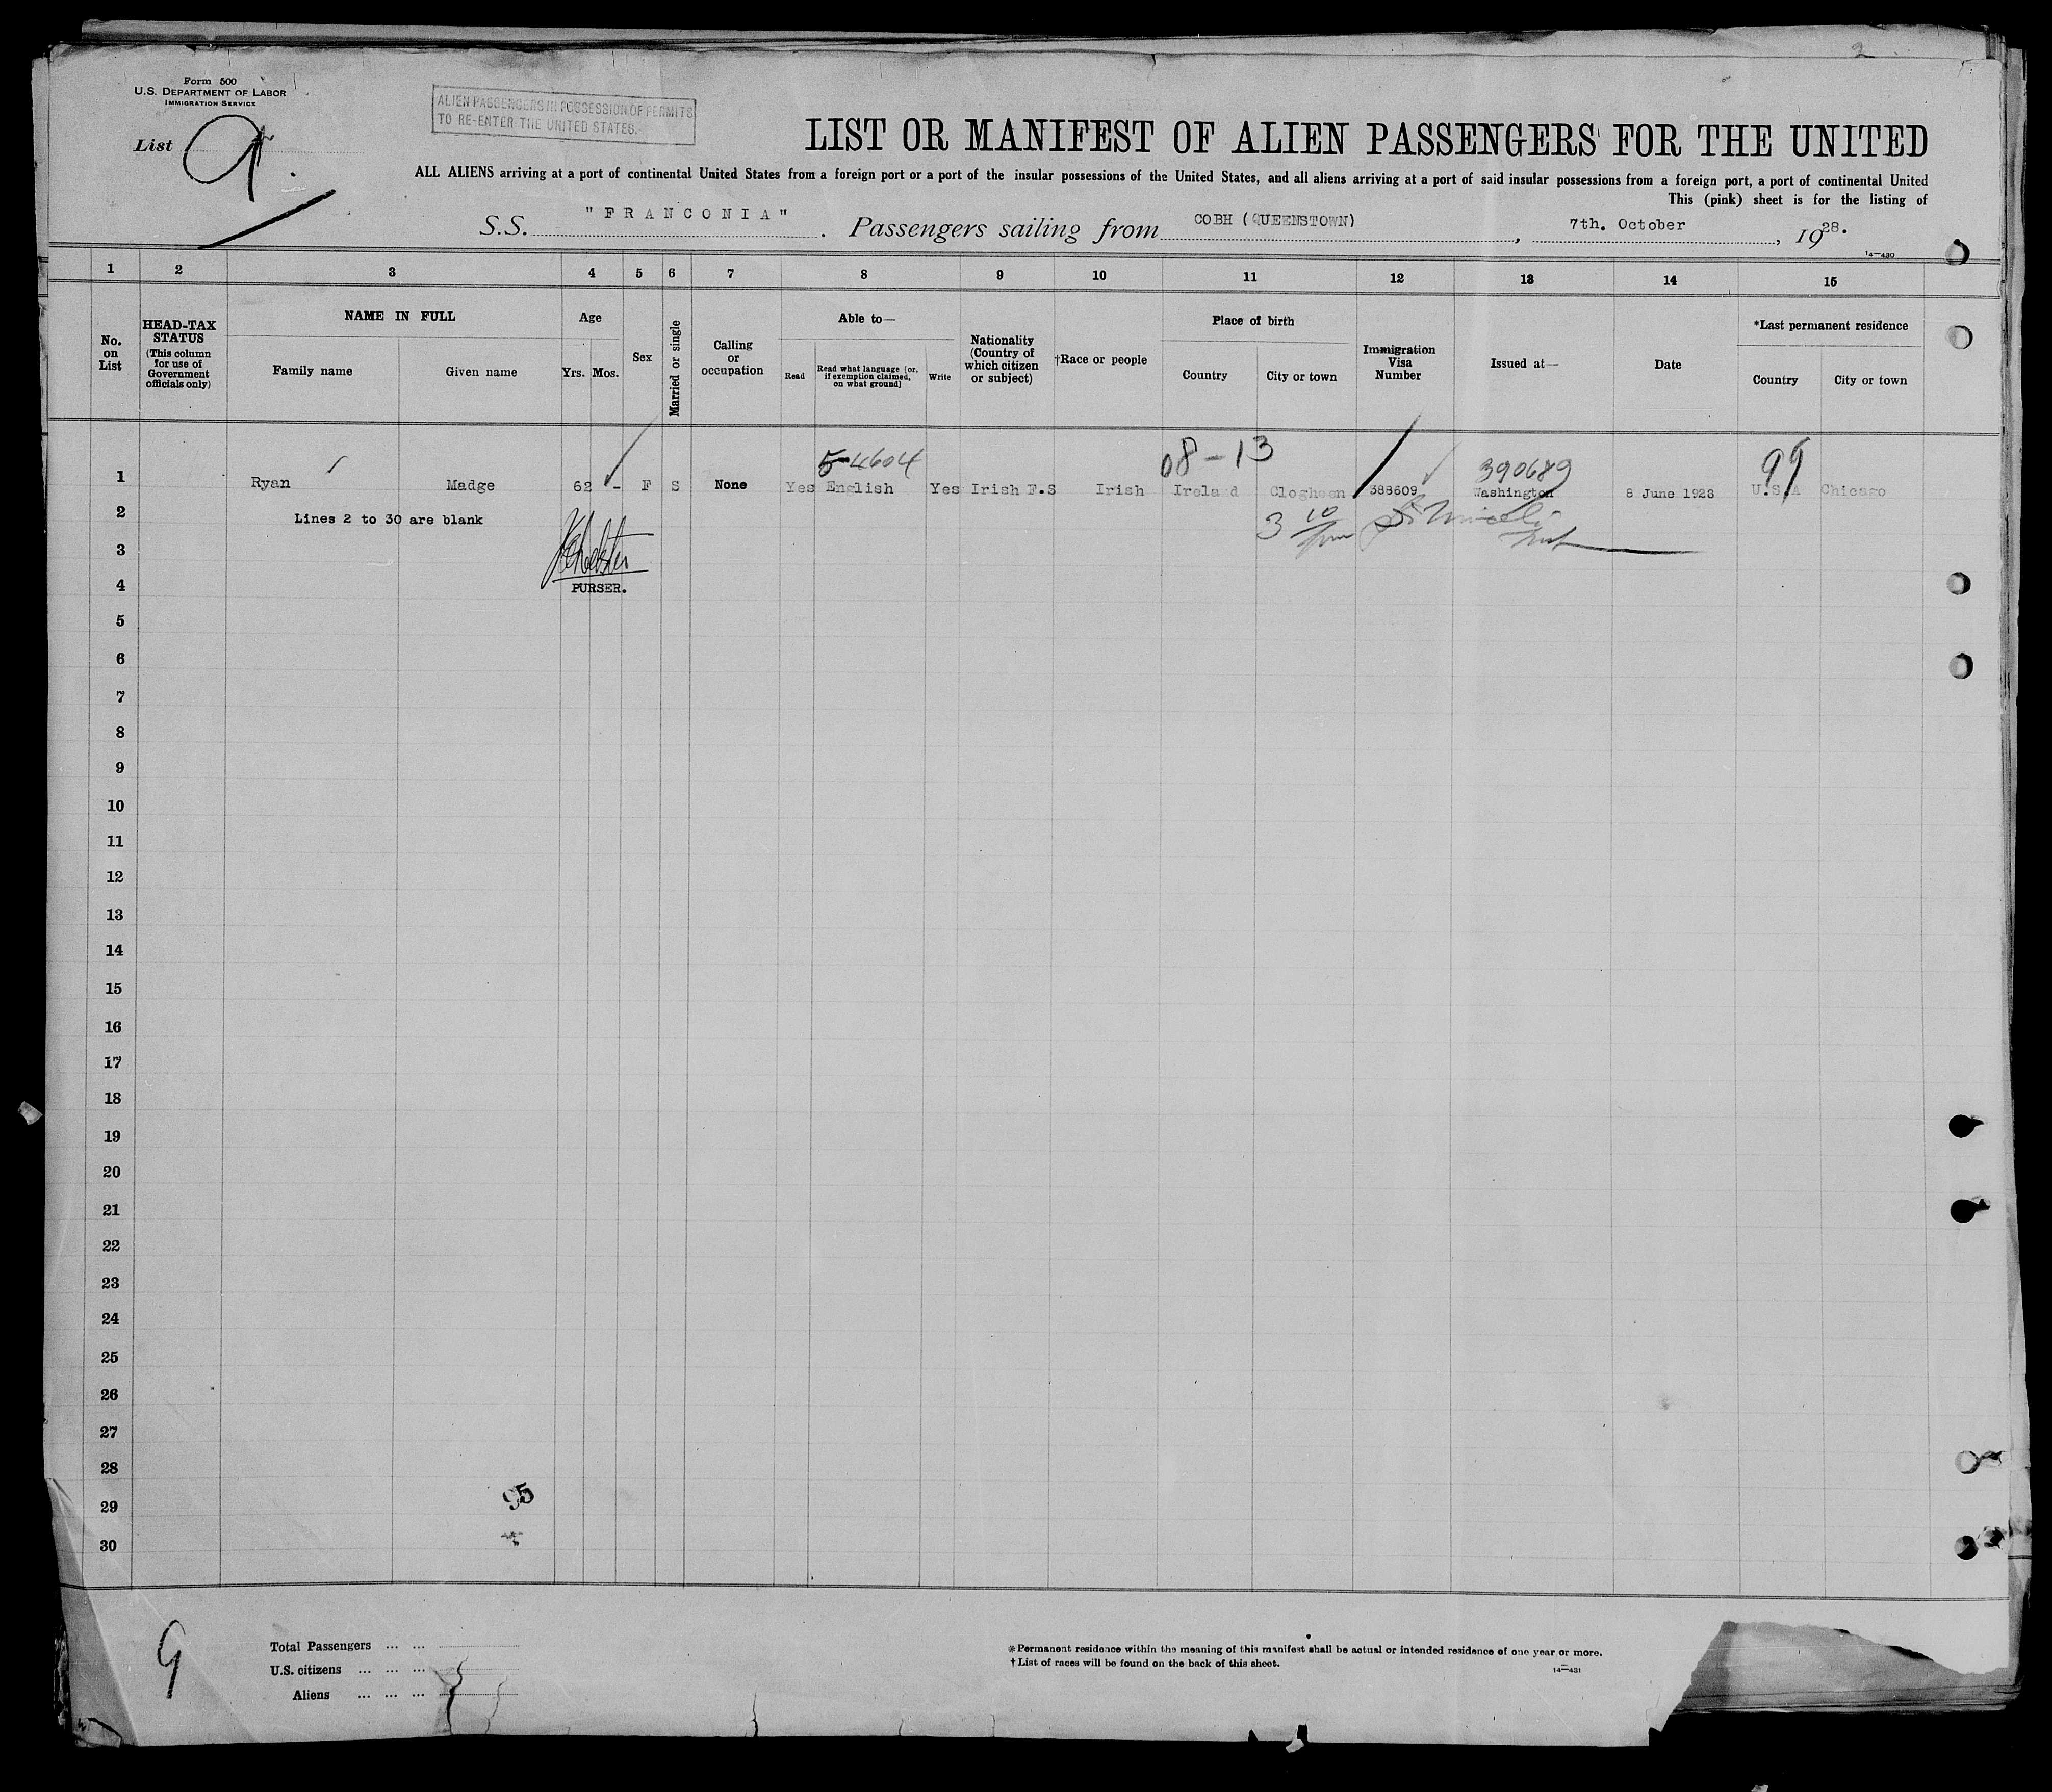 2
Form 500
U.S. DEPARTMENT OF LABOR
IMMIGRATION SERVICE
ALIEN PASSENGERS IN POSSESSION OF PERMITS
TO RE-ENTER THE UNITED STATES.
List
LIST OR MANIFEST OF ALIEN PASSENGERS FOR THE UNITED
ALL ALIENS arriving at a port of continental United States from a foreign port or a port of the insular possessions of the United States, and all aliens arriving at a port of said insular possessions from a foreign port, a port of continental United
This (pink) sheet is for the listing of
S.S. "FRANCONIA". Passengers sailing from COBH (QUEENSTOWN), 7th. October, 1928.
14—430
1 2 3 4 5 6 7 8 9 10 11 12 13 14 15
No. on List
HEAD-TAX STATUS
(This column for use of Government officials only)
NAME IN FULL
Family name
Given name
Age
Yrs. Mos.
Sex
Married or single
Calling or occupation
Able to—
Read
Read what language [or, if exemption claimed, on what ground]
Write
Nationality (Country of which citizen or subject)
†Race or people
Place of birth
Country
City or town
Immigration Visa Number
Issued at—
Date
*Last permanent residence
Country
City or town
5-4604 08-13 390689 99
1 Ryan Madge 62 - F S None Yes English Yes Irish F.S Irish Ireland Clogheen 388609 Washington 8 June 1928 U.S.A Chicago
2 Lines 2 to 30 are blank 3 10
3
4 PURSER.
5
6
7
8
9
10
11
12
13
14
15
16
17
18
19
20
21
22
23
24
25
26
27
28
95
29
30
9
Total Passengers ... ...
U.S. citizens ... ... ...
Aliens ... ... ...
*Permanent residence within the meaning of this manifest shall be actual or intended residence of one year or more.
†List of races will be found on the back of this sheet.
14—431